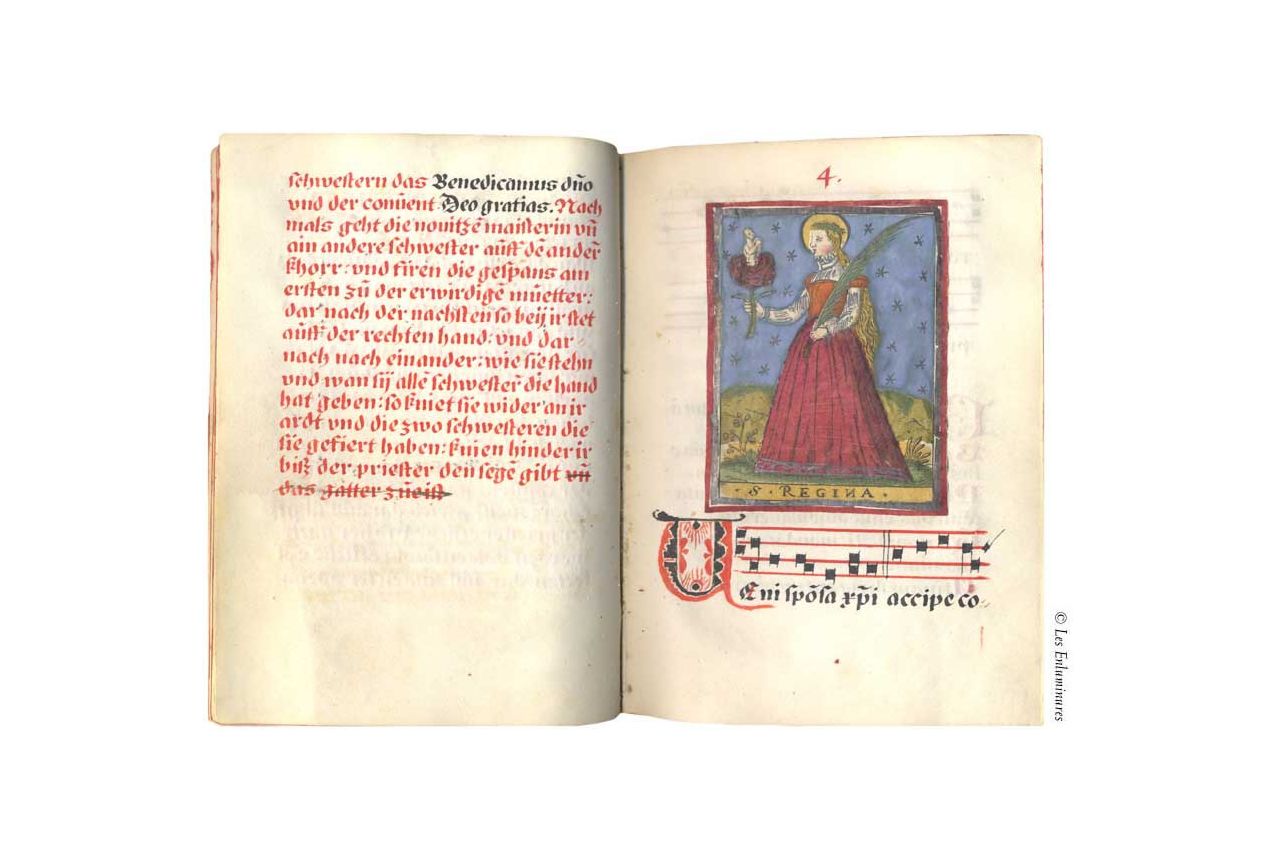 schwestern das Benedicamus dn̄o
vnd der conuent Deo gratias. Nach
mals geht die nouitzē maisterin vn̄
ain andere schwester auff dē anderē
khorr: vnd firen die gespans am
ersten zū der erwirdigē mūetter:
dar nach der nachsten so beij ir stet
auff der rechten hand: vnd dar
nach nach einander: wie sie stehn
vnd wan sij allē schwesterē die hand
hat geben: so kniet sie wider an ir
ardt vnd die zwo schwesteren die
sie gefiert haben: knien hinder ir
biß der priester den segē gibt vn̄
das gatter zūeist
4.
S · REGINA ·
Ueni spōsa xp̄i accipe co
© Les Enluminures